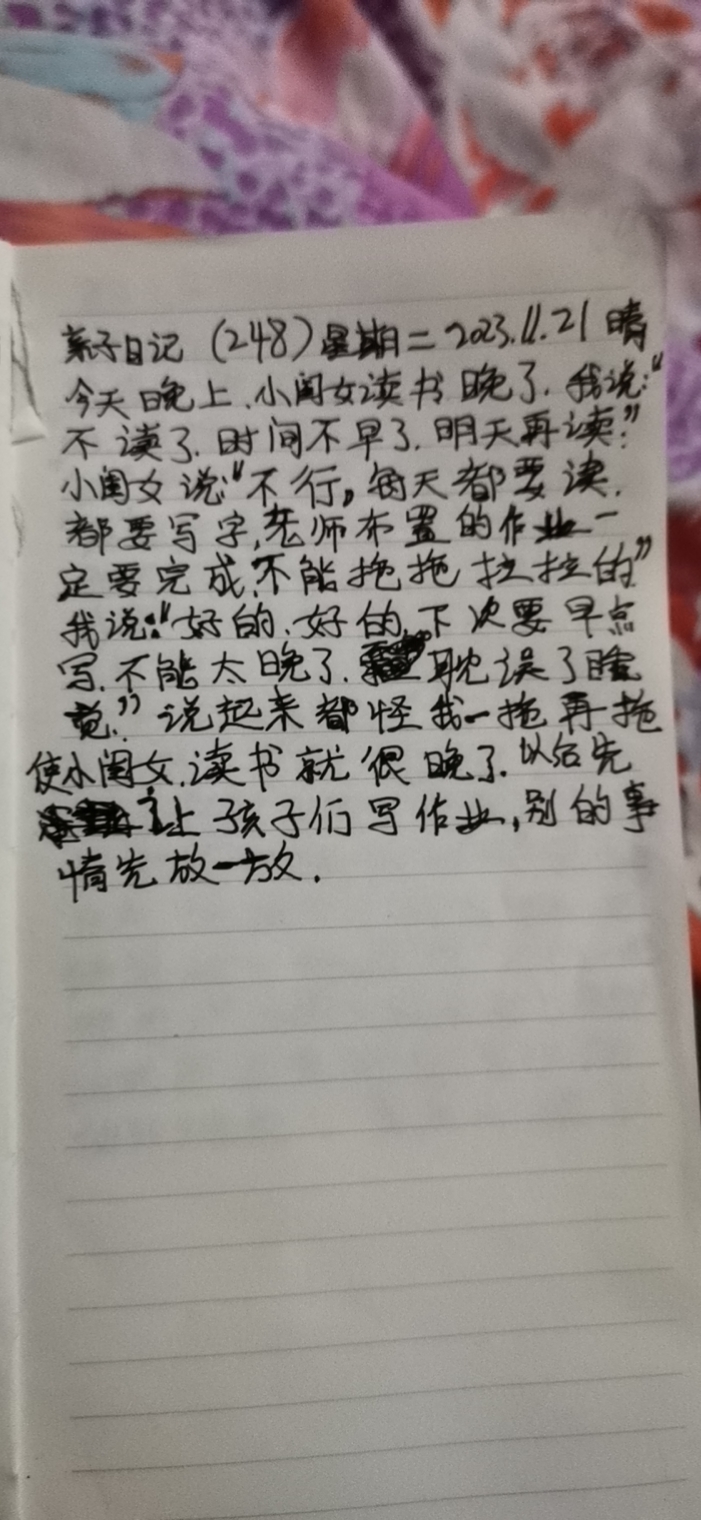 亲子日记（248）星期二 2023.11.21 晴
今天晚上.小闺女读书晚了.我说:"
不读了.时间不早了.明天再读."
小闺女说:"不行,每天都要读.
都要写字,老师布置的作业一
定要完成,不能拖拖拉拉的"
我说:"好的.好的,下次要早点
写.不能太晚了.耽误了睡
觉."说起来都怪我一拖再拖
使小闺女.读书就很晚了.以后先
让孩子们写作业,别的事
情先放一放.